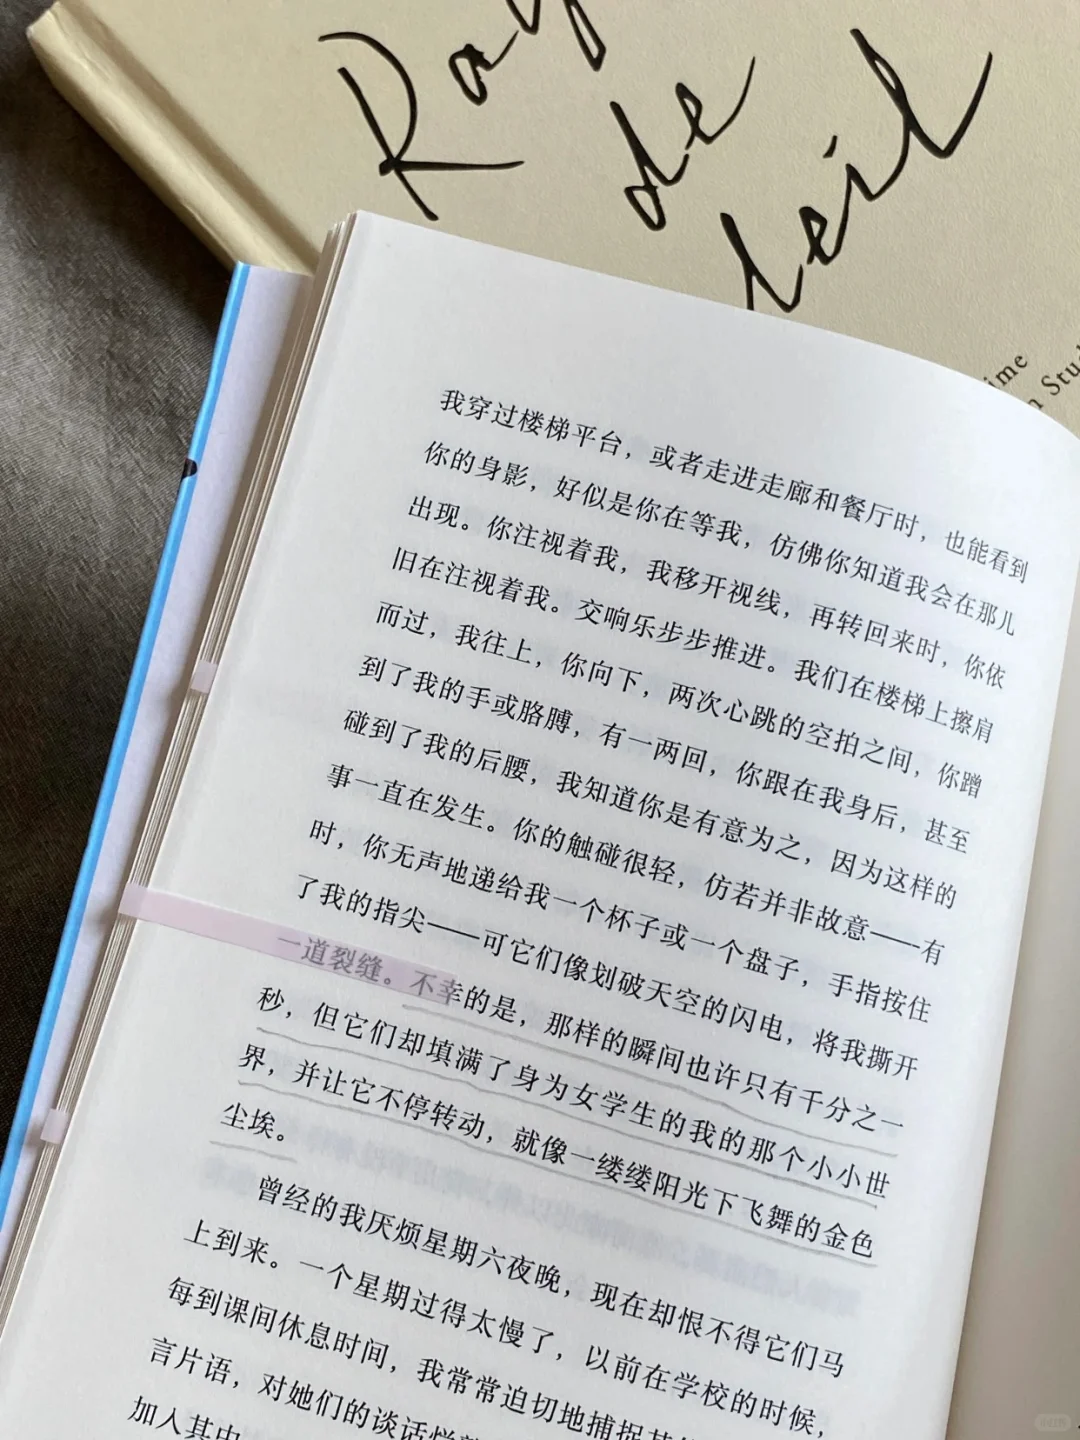 Ray
de
leil
ime
n Stud
我穿过楼梯平台，或者走进走廊和餐厅时，也能看到
你的身影，好似是你在等我，仿佛你知道我会在那儿
出现。你注视着我，我移开视线，再转回来时，你依
旧在注视着我。交响乐步步推进。我们在楼梯上擦肩
而过，我往上，你向下，两次心跳的空拍之间，你蹭
到了我的手或胳膊，有一两回，你跟在我身后，甚至
碰到了我的后腰，我知道你是有意为之，因为这样的
事一直在发生。你的触碰很轻，仿若并非故意——有
时，你无声地递给我一个杯子或一个盘子，手指按住
了我的指尖——可它们像划破天空的闪电，将我撕开
一道裂缝。不幸的是，那样的瞬间也许只有千分之一
秒，但它们却填满了身为女学生的我的那个小小世
界，并让它不停转动，就像一缕缕阳光下飞舞的金色
尘埃。
曾经的我厌烦星期六夜晚，现在却恨不得它们马
上到来。一个星期过得太慢了，以前在学校的时候，
每到课间休息时间，我常常迫切地捕捉
言片语，对她们的谈话
加入其中